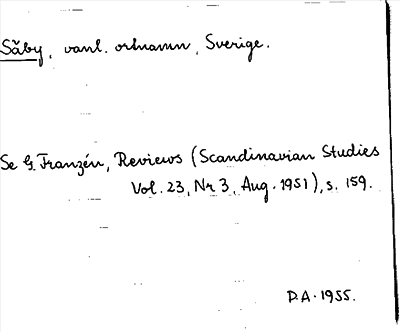 Säby, vanl. ortnamn, Sverige.
Se G. Franzén, Reviews (Scandinavian Studies
Vol. 23, Nr 3, Aug. 1951), s. 159.
D.A. 1955.